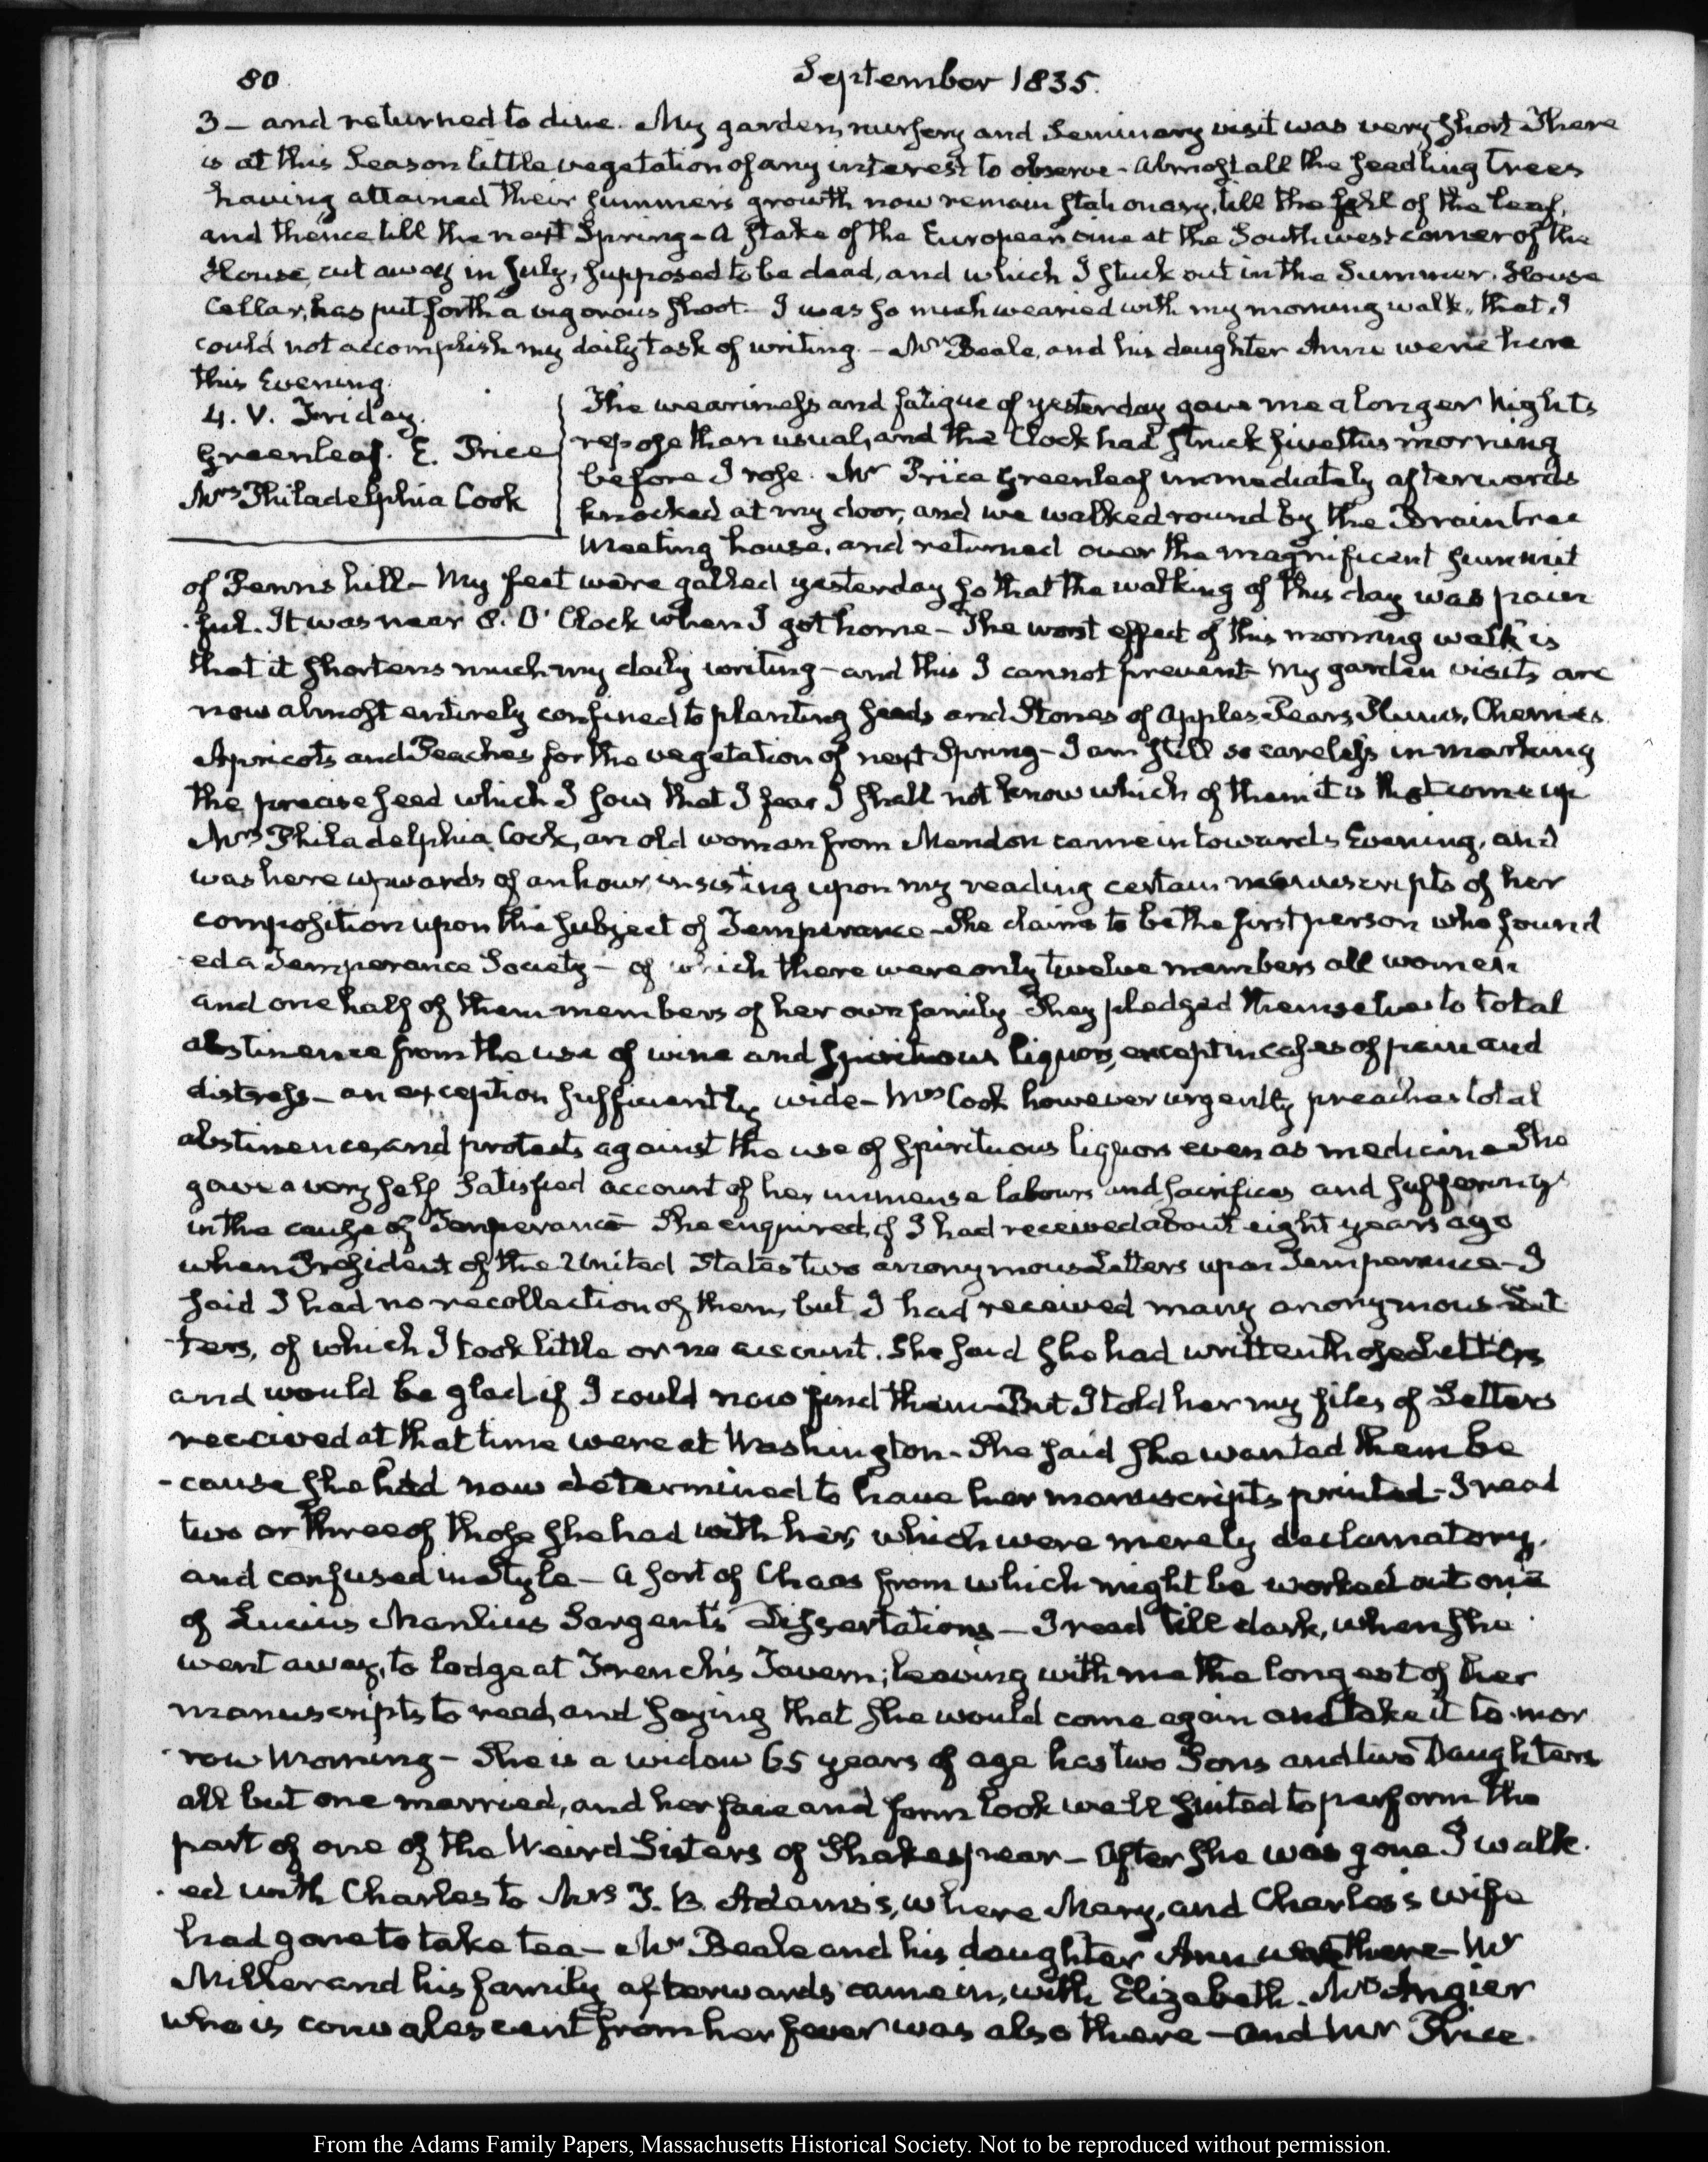 80
September 1835.
3 - and returned to dine. My garden, nursery and Seminary visit was very short There
is at this Season little vegetation of any interest to observe - almost all the seedling trees
having attained their summer's growth now remain stationary, till the fall of the leaf,
and thence till the next Spring - A stake of the European vine at the Southwest corner of the
House, cut away in July, supposed to be dead, and which I stuck out in the Summer-House
Cellar, has put forth a vigorous shoot - I was so much wearied with my morning walk, that I
could not accomplish my daily task of writing. - Mr Beale, and his daughter Anne were here
this Evening.
4. V. Friday.
Greenleaf. E. Price
Mrs Philadelphia Cook
The weariness and fatigue of yesterday gave me a longer Night's
repose than usual, and the Clock had struck five this morning
before I rose. Mr Price Greenleaf immediately afterwards
knocked at my door, and we walked round by the Braintree
Meeting house, and returned over the magnificent summit
of Penn's hill - My feet were galled yesterday so that the walking of this day was pain
-ful. It was near 8. O'Clock when I got home - The worst effect of this morning walk is
that it shortens much my daily writing - and this I cannot prevent - My garden visits are
now almost entirely confined to planting seeds and Stones of Apples, Pears, Plums, Cherries
Apricots and Peaches for the vegetation of next Spring - I am still so careless in marking
the precise seed which I sow, that I fear I shall not know which of them it is that come up
Mrs Philadelphia Cook, an old woman from Mendon came in towards Evening, and
was here upwards of an hour, insisting upon my reading certain manuscripts of her
composition upon the subject of Temperance - She claims to be the first person who found
-ed a Temperance Society - of which there were only twelve members all women
and one half of them members of her own family - They pledged themselves to total
abstinence from the use of wine and spirituous liquors, except in cases of pain and
distress - an exception sufficiently wide - Mrs Cook however urgently preaches total
abstinence, and protests against the use of spirituous liquors even as medicine She
gave a very self satisfied account of her immense labours and sacrifices and sufferings
in the cause of Temperance She enquired, if I had received about eight years ago
when President of the United States two anonymous Letters upon Temperance - I
said I had no recollection of them, but I had received many anonymous Let
-ters, of which I took little or no account. She said she had written those Letters
and would be glad if I could now find them - But I told her my files of Letters
received at that time were at Washington - She said she wanted them be
-cause she had now determined to have her manuscripts printed - I read
two or three of those she had with her, which were merely declamatory,
and confused in Style - A sort of Chaos from which might be worked out one
of Lucius Manlius Sargent's Dissertations - I read till dark, when she
went away, to lodge at French's Tavern; leaving with me the longest of her
manuscripts to read, and saying that she would come again and take it to-mor
-row Morning - She is a widow 65 years of age has two Sons and two Daughters
all but one married, and her face and form look well suited to perform the
part of one of the Weird Sisters of Shakespear - After she was gone I walk
-ed with Charles to Mrs T. B. Adams's, where Mary, and Charles's wife
had gone to take tea - Mr Beale and his daughter Ann were there - Mr
Miller and his family afterwards came in, with Elizabeth. Mrs Angier
who is convalescent from her fever was also there - and Mr Price
From the Adams Family Papers, Massachusetts Historical Society. Not to be reproduced without permission.